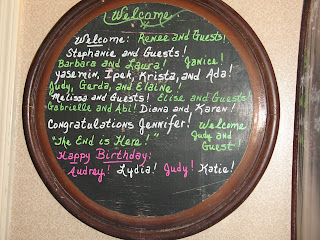 Welcome
Welcome: Renee and Guests!
Stephanie and Guests!
Barbara and Laura! Janice!
Yasemin, Ipek, Krista, and Ada!
Judy, Gerda, and Elaine!
Melissa and Guests! Elise and Guests!
Gabrielle and Abi! Diana and Karen!
Congratulations Jennifer! Welcome
"The End is Here!" Judy and
Guest
Happy Birthday:
Audrey! Lydia! Judy! Katie!